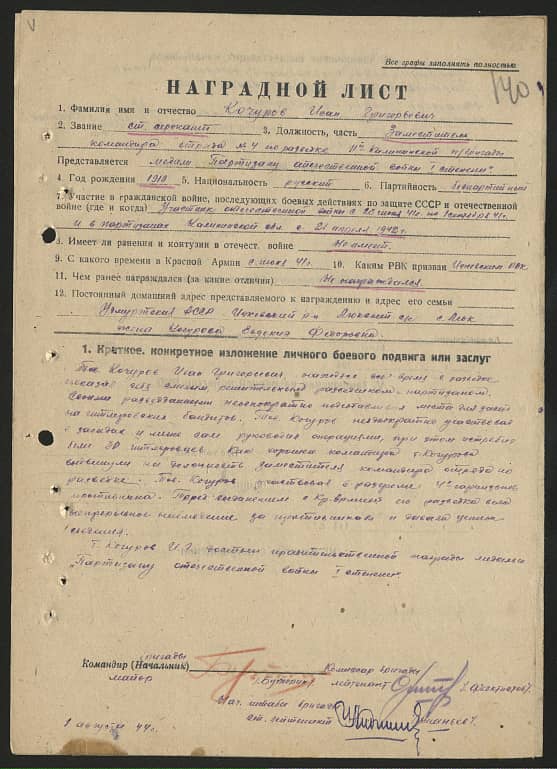 Все графы заполнять полностью
140
НАГРАДНОЙ ЛИСТ
1. Фамилия имя и отчество Кочуров Иван Григорьевич
2. Звание ст. сержант 3. Должность, часть Заместитель
командира отряда № 4 по разведке 11й Калининской п/бригады
Представляется медали "Партизану отечественной войны I степени"
4. Год рождения 1919 5. Национальность русский 6. Партийность беспартийный
7. Участие в гражданской войне, последующих боевых действиях по защите СССР и отечественной
войне (где и когда) Участник отечественной войны с июня 41г. по 41г.
и в партизанах Калининской обл. с 21 апреля 1942г.
8. Имеет ли ранения и контузии в отечест. войне Не имеет.
9. С какого времени в Красной Армии с июня 41г. 10. Каким РВК призван РВК.
11. Чем ранее награждался (за какие отличия) Не награждался.
12. Постоянный домашний адрес представляемого к награждению и адрес его семьи
Удмуртская АССР р-н с/с с.
жена Кочурова Евдокия Федоровна
1. Краткое, конкретное изложение личного боевого подвига или заслуг
Тов. Кочуров Иван Григорьевич, находясь все время в разведке
показал себя смелым, решительным разведчиком-партизаном.
Своими разведданными неоднократно
гитлеровских бандитов. Тов. Кочуров неоднократно участвовал
в засадах и лично сам руководил операциями, при этом истребил
30 гитлеровцев. Как хороший командир т. Кочуров
на должность заместителя командира отряда по
разведке. Тов. Кочуров участвовал в разгроме 4х гарнизонов
противника. Перед соединением с Кр. армией его разведка вела
непрерывное наблюдение за противником и давала ценные
сведения.
т. Кочуров И.Г. достоин правительственной награды медали
"Партизану отечественной войны I степени"
Командир (Начальник) бригады
майор
Комиссар бригады
лейтенант
Нач. штаба бригады
ст. лейтенант
1 августа 44г.